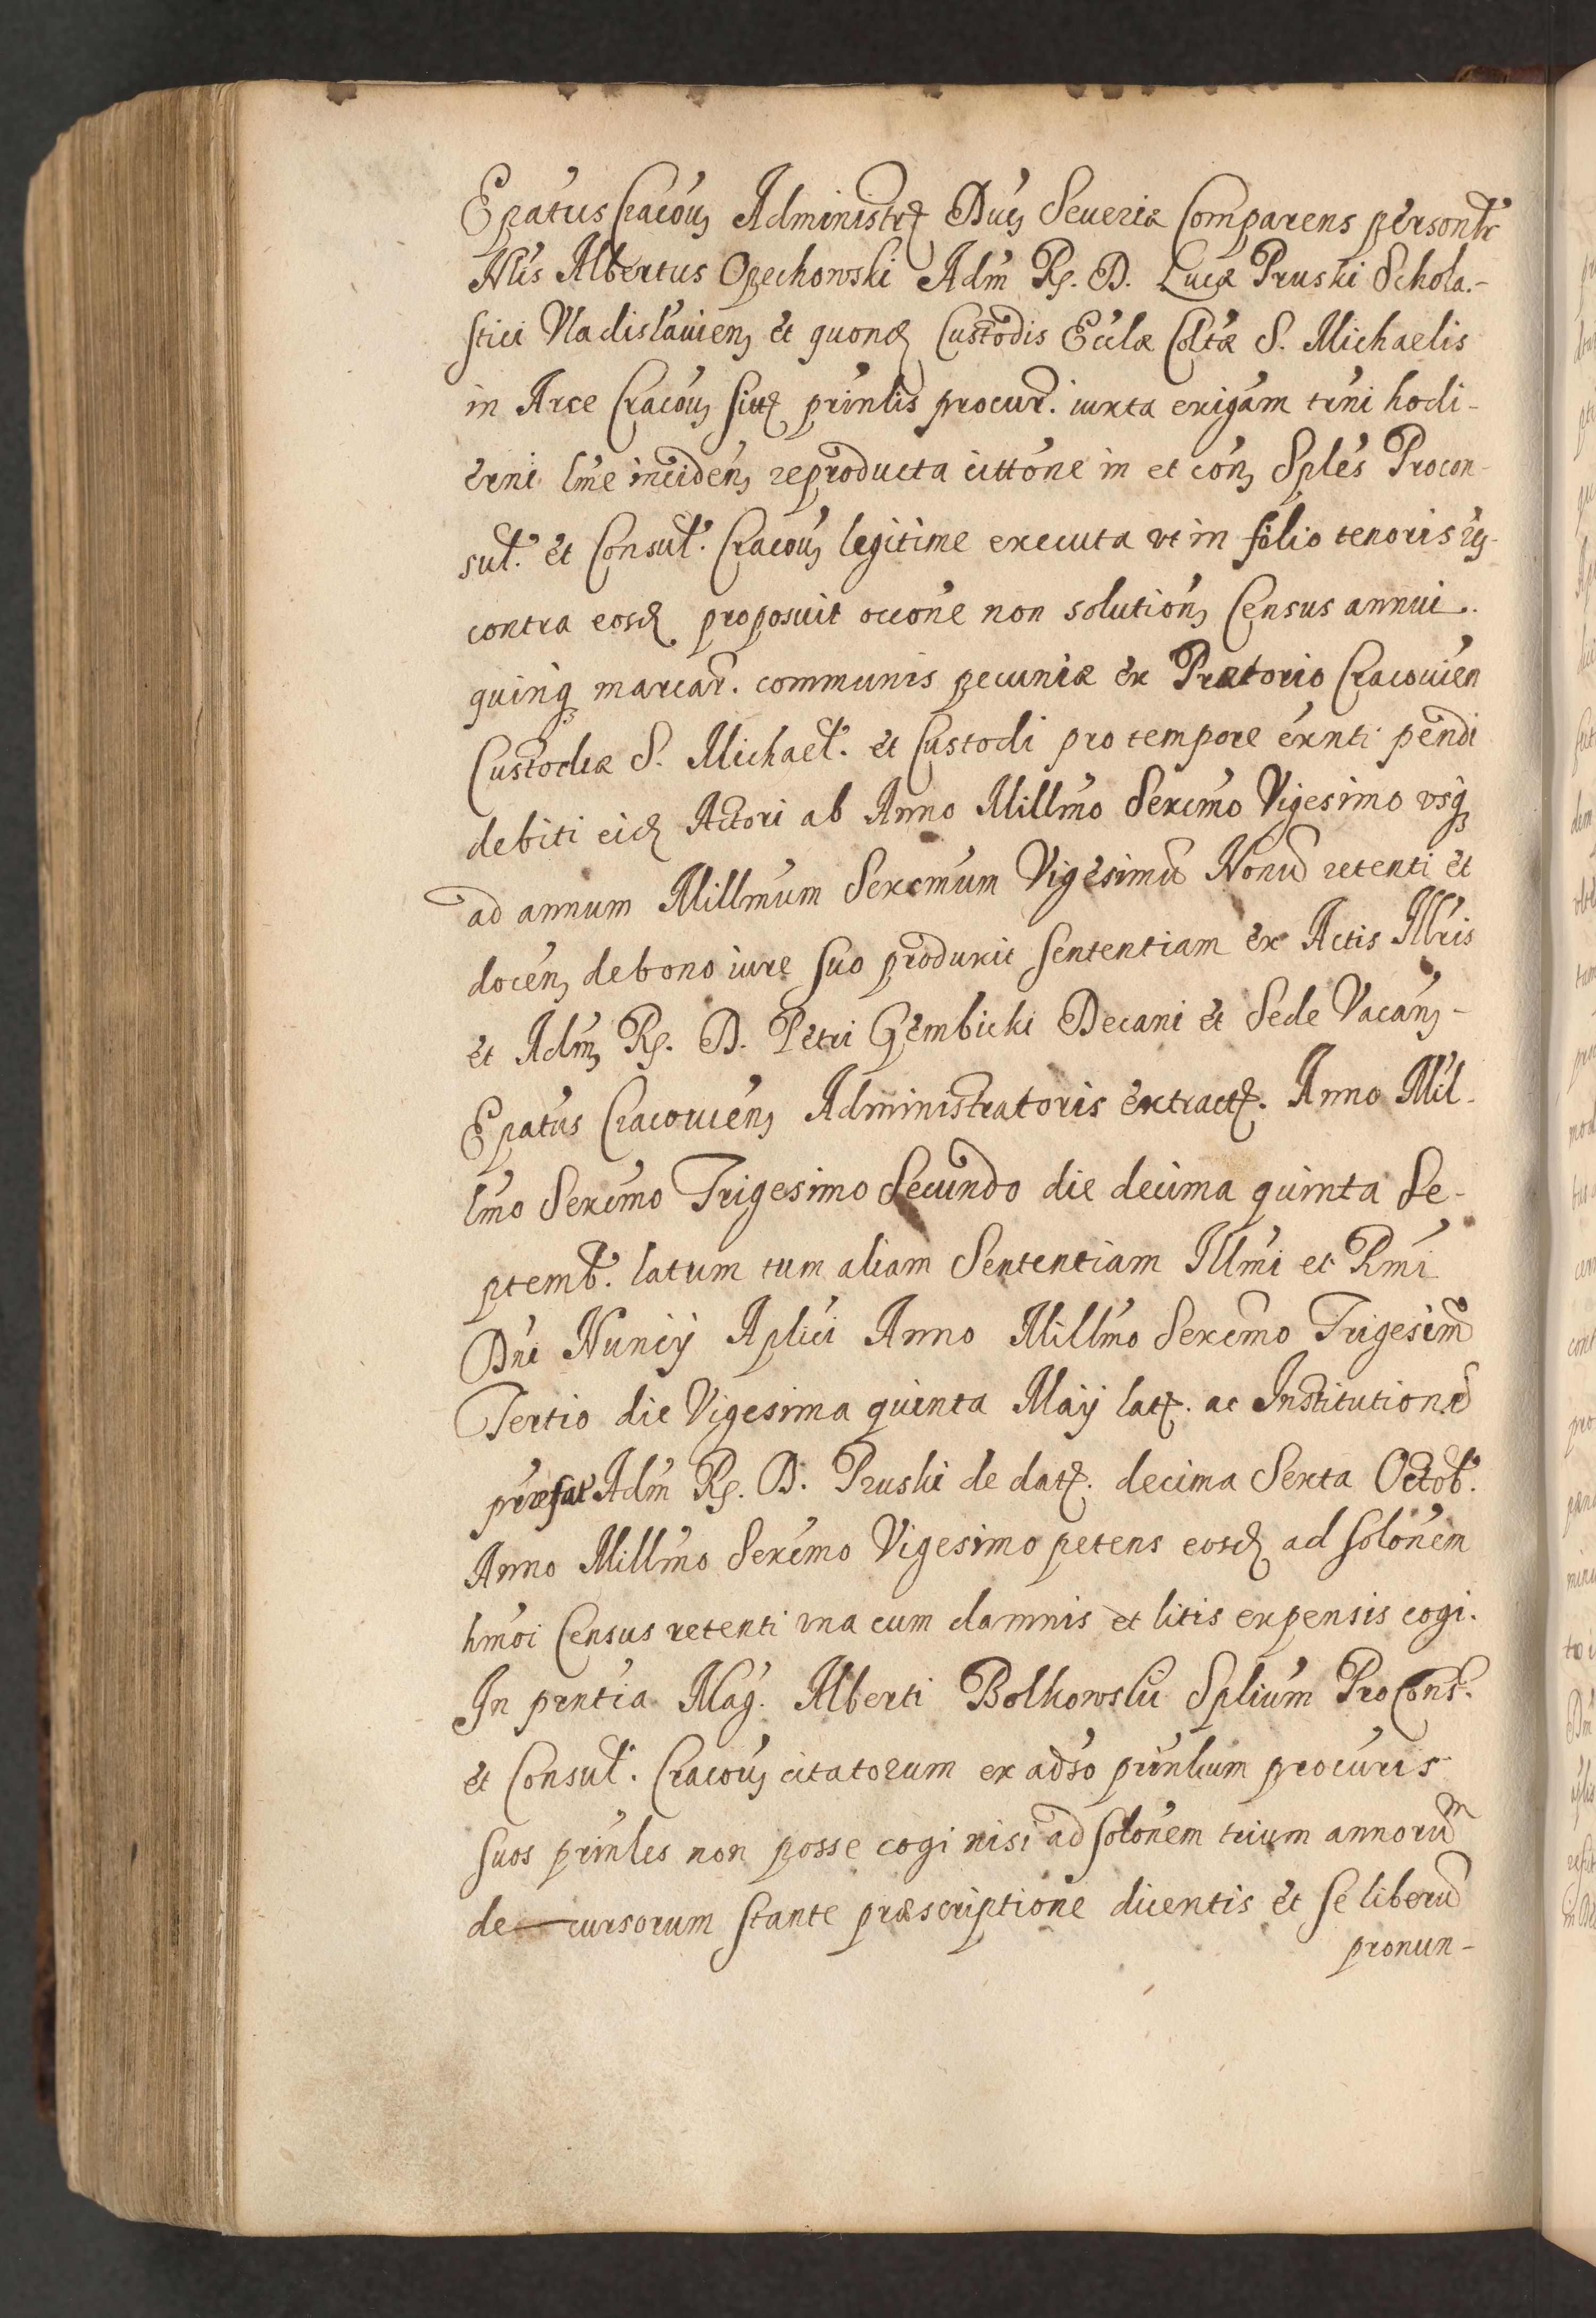 Epatus Cracou, Administr. Duc, Seueriæ Comparens personlr
Nlis Albertus Opechowski Adm R. D. Lucæ Pruski Schola-
stici Vladislauien, et quond Custodis Eccłæ Colłtæ S. Michaelis
in Arce Cracou, sitę prinlis procur. iuxta exigam trni hodi-
erni lme inciden, reproducta cittone in et con, Sples Procon-
sul. et Consul. Cracou, legitime executa vt in folio tenoris
contra eosd proposuit occone non solution, Census annui
quinq marcar. communis pecuniæ ex Prætorio Cracouien
Custodiæ S. Michael. et Custodi pro tempore exnti pendi
debiti eid Actori ab Anno Millmo Sexcmo Vigesimo vsq
ad annum Millmum Sexcmum Vigesimu Nonu retenti et
docen, de bono iure suo produxit sententiam ex Actis Illris
et Adm, R. D. Petri Gembicki Decani et Sede Vacan,-
Epatus Cracouien, Administratoris extract. Anno Mil-
lmo Sexcmo Trigesimo Secundo die decima quinta Se-
ptemb. latum tum aliam Sententiam Illmi et Rmi
Dni Nuncij Aplici Anno Millmo Sexcmo Trigesimo
Tertio die Vigesima quinta Maij lat. ac Institutione
præfat Adm R. D. Pruski de dat. decima Sexta Octob.
Anno Millmo Sexcmo Vigesimo petens eosd ad solonem
hmoi Census retenti vna cum damnis et litis expensis cogi.
In pntia Mag. Alberti Bolkowski Splium ProCons.
et Consul. Cracou, citatorum ex adso prinlium procuris
suos prinles non posse cogi nisi ad solonem trium annorum
de-cursorum stante præscriptione dicentis et se liberu
pronun-